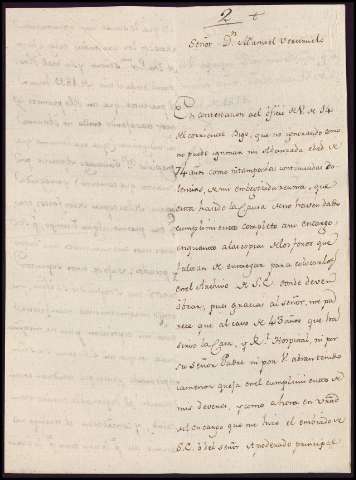 2 t
Señor Dn. Manuel
En contestacion al oficio de V. de 14
del corriente Digo, que no ignorando como
no puede ignorar mi abanzada edad de
74 años como ni tampoco las continuadas Do-
lencias, de mi embegezada reuma, que
esta ha sido la Causa de no haver dado
cumplimiento completo a mi encargo,
en quanto a las copias de los foros que
faltan de entregar para colocarlos
en el Archivo de S.E. donde deven
obrar, pues gracias al señor, me pa-
rece que al cavo de 43 años que ha
sirvo la Casa, y Rl. Hospital, ni por
su señor Padre ni por V. abran tenido
la menor quexa en el cumplimiento de
mis deveres, y como ahora en
del encargo que me hizo el embiado de
S.E. o del señor Apoderado principal